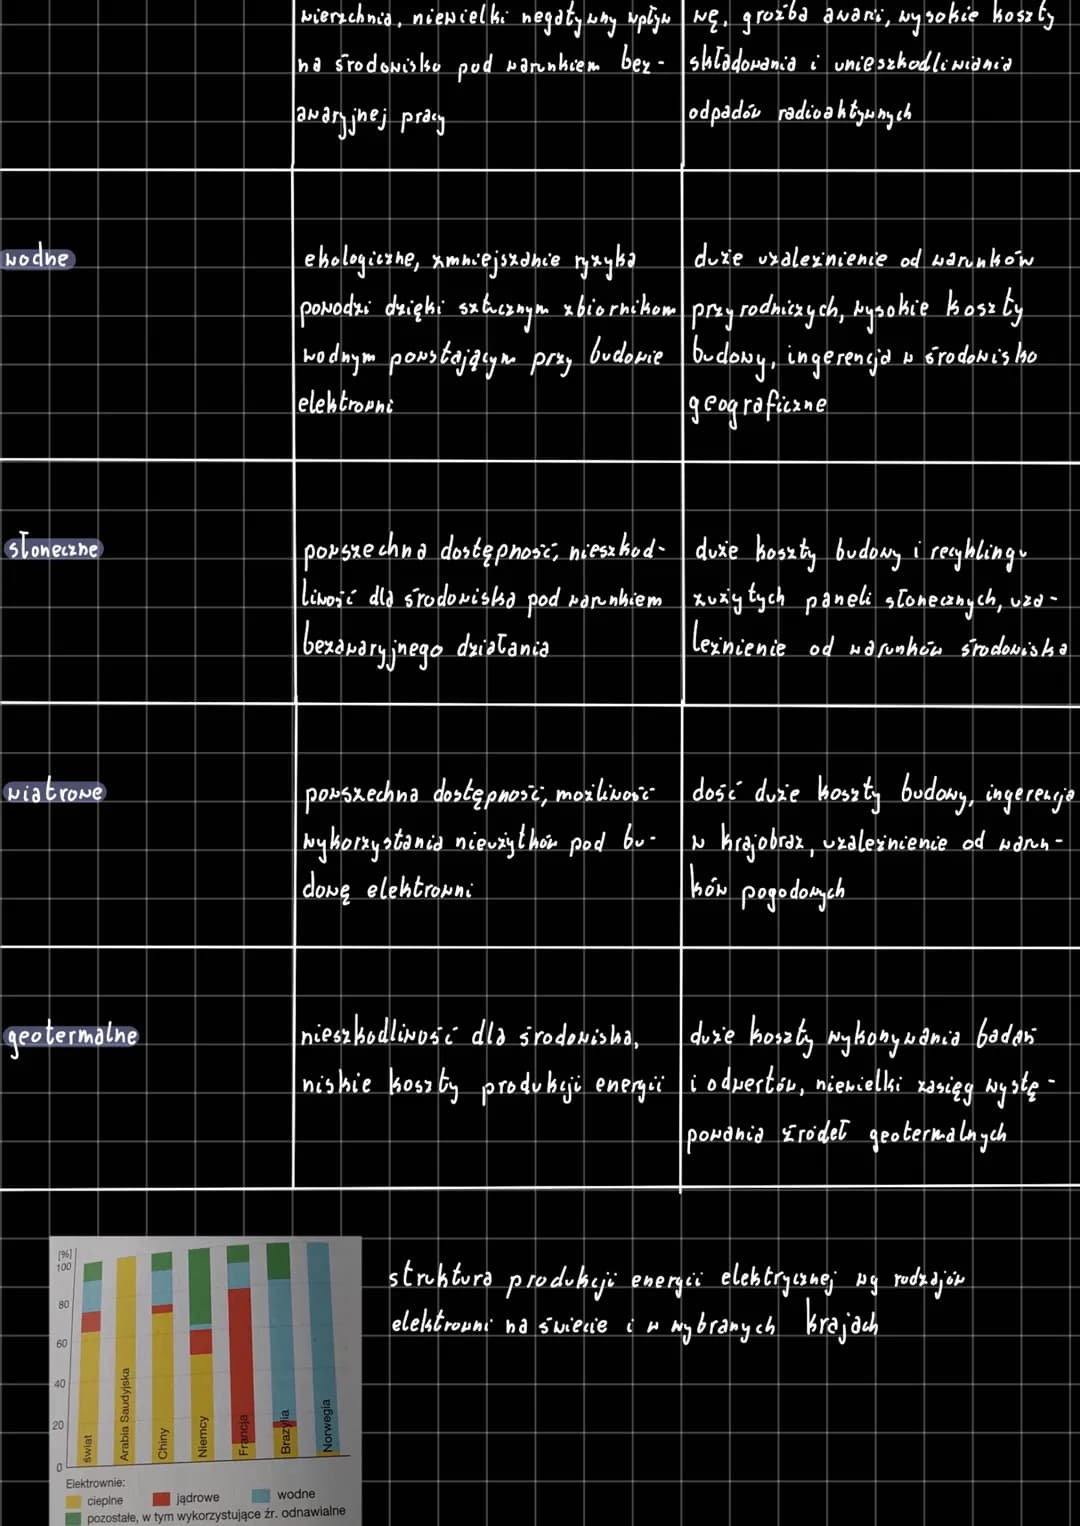 wierzchnia, niewielki negatywny wpływ
na środowisko pod warunkiem bez-
awaryjnej pracy
wę, groźba awarii, wysokie koszty
składowania i unieszkodliwiania
odpadów radioaktywnych
wodne
ekologiczne, zmniejszanie ryzyka
powodzi dzięki sztucznym zbiornikom
wodnym powstającym przy budowie
elektrowni
duże uzależnienie od warunków
przyrodniczych, wysokie koszty
budowy, ingerencja w środowisko
geograficzne
słoneczne
powszechna dostępność, nieszkod-
liwość dla środowiska pod warunkiem
bezawaryjnego działania
duże koszty budowy i recyklingu
zużytych paneli słonecznych, uza-
leżnienie od warunków środowiska
wiatrowe
powszechna dostępność, możliwość
wykorzystania nieużytków pod bu-
dowę elektrowni
dość duże koszty budowy, ingerencja
w krajobraz, uzależnienie od warun-
ków pogodowych
geotermalne
nieszkodliwość dla środowiska,
niskie koszty produkcji energii
duże koszty wykonywania badań
i odwertów, niewielki zasięg wystę-
powania źródeł geotermalnych
[%]
100
80
60
40
20
0
świat
Arabia Saudyjska
Chiny
Niemcy
Francja
Brazylia
Norwegia
Elektrownie:
cieplne jądrowe wodne
pozostałe, w tym wykorzystujące źr. odnawialne
struktura produkcji energii elektrycznej wg rodzajów
elektrowni na świecie i w wybranych krajach